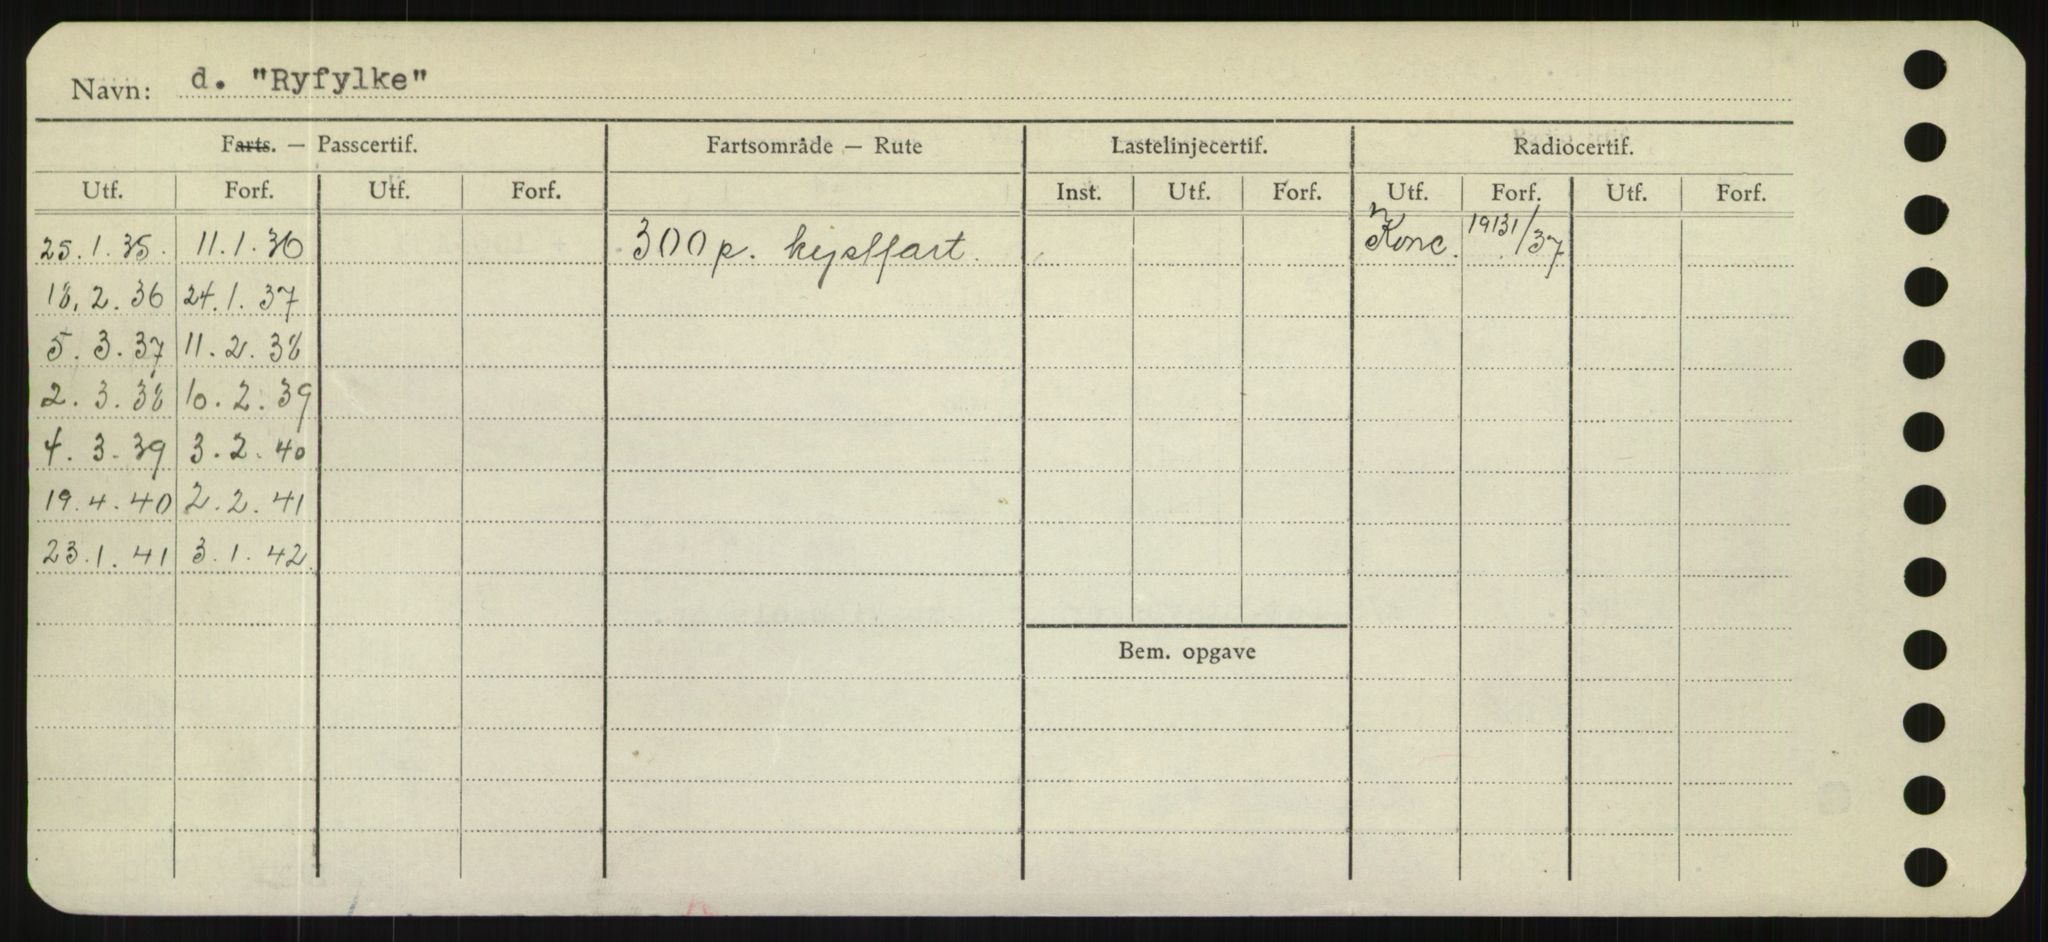 Navn: d. "Ryfylke"
Farts. — Passcertif. Fartsområde — Rute Lastelinjecertif. Radiocertif.
Utf. Forf. Utf. Forf. Inst. Utf. Forf. Utf. Forf. Utf. Forf.
25.1.35. 11.1.36 300 p. kystfart. Konc. 19131/37
18.2.36 24.1.37
5.3.37 11.2.38
2.3.38 10.2.39
4.3.39 3.2.40
19.4.40 2.2.41
23.1.41 3.1.42.
Bem. opgave